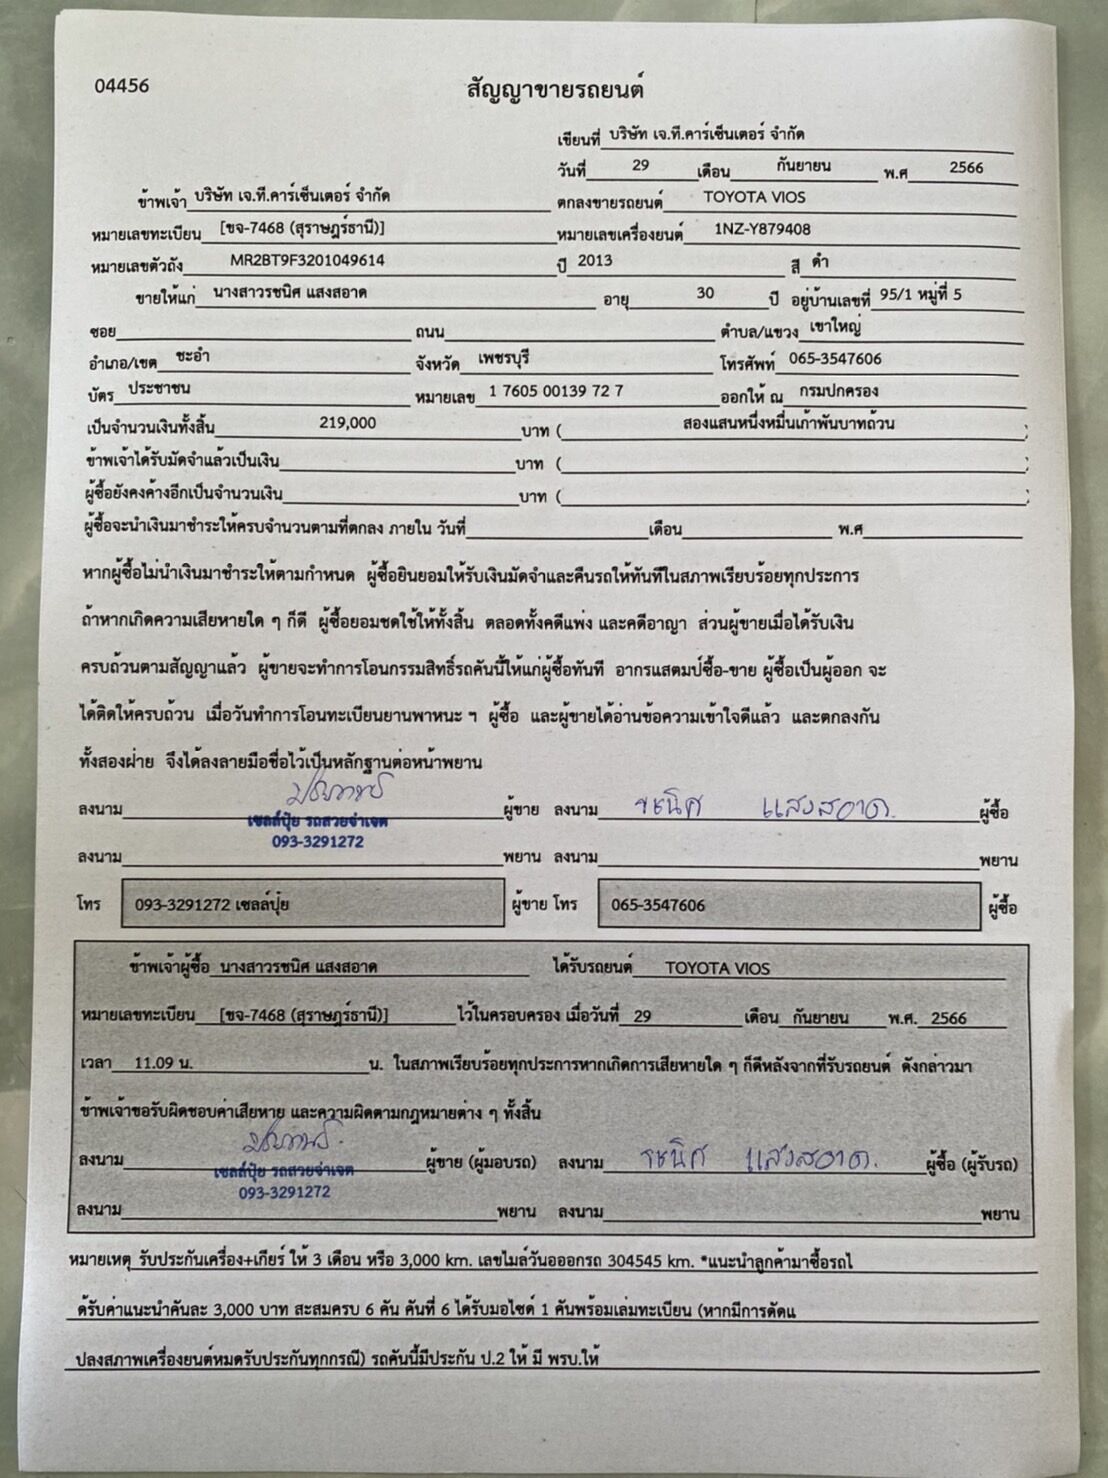 04456
สัญญาขายรถยนต์
เขียนที่ บริษัท เจ.ที.คาร์เซ็นเตอร์ จำกัด
วันที่ 29 เดือน กันยายน พ.ศ 2566
ข้าพเจ้า บริษัท เจ.ที.คาร์เซ็นเตอร์ จำกัด ตกลงขายรถยนต์ TOYOTA VIOS
หมายเลขทะเบียน [ขจ-7468 (สุราษฎร์ธานี)] หมายเลขเครื่องยนต์ 1NZ-Y879408
หมายเลขตัวถัง MR2BT9F3201049614 ปี 2013 สี ดำ
ขายให้แก่ นางสาวรชนิศ แสงสอาด อายุ 30 ปี อยู่บ้านเลขที่ 95/1 หมู่ที่ 5
ซอย ถนน ตำบล/แขวง เขาใหญ่
อำเภอ/เขต ชะอำ จังหวัด เพชรบุรี โทรศัพท์ 065-3547606
บัตร ประชาชน หมายเลข 1 7605 00139 72 7 ออกให้ ณ กรมปกครอง
เป็นจำนวนเงินทั้งสิ้น 219,000 บาท ( สองแสนหนึ่งหมื่นเก้าพันบาทถ้วน )
ข้าพเจ้าได้รับมัดจำแล้วเป็นเงิน บาท ( )
ผู้ซื้อยังคงค้างอีกเป็นจำนวนเงิน บาท ( )
ผู้ซื้อจะนำเงินมาชำระให้ครบจำนวนตามที่ตกลง ภายใน วันที่ เดือน พ.ศ
หากผู้ซื้อไม่นำเงินมาชำระให้ตามกำหนด ผู้ซื้อยินยอมให้รับเงินมัดจำและคืนรถให้ทันทีในสภาพเรียบร้อยทุกประการ
ถ้าหากเกิดความเสียหายใด ๆ ก็ดี ผู้ซื้อยอมชดใช้ให้ทั้งสิ้น ตลอดทั้งคดีแพ่ง และคดีอาญา ส่วนผู้ขายเมื่อได้รับเงิน
ครบถ้วนตามสัญญาแล้ว ผู้ขายจะทำการโอนกรรมสิทธิ์รถคันนี้ให้แก่ผู้ซื้อทันที อากรแสตมป์ซื้อ-ขาย ผู้ซื้อเป็นผู้ออก จะ
ได้ติดให้ครบถ้วน เมื่อวันทำการโอนทะเบียนยานพาหนะ ฯ ผู้ซื้อ และผู้ขายได้อ่านข้อความเข้าใจดีแล้ว และตกลงกัน
ทั้งสองฝ่าย จึงได้ลงลายมือชื่อไว้เป็นหลักฐานต่อหน้าพยาน
ลงนาม ผู้ขาย ลงนาม รชนิศ แสงสอาด ผู้ซื้อ
เซลล์ปุ้ย รถสวยจำเจต
093-3291272
ลงนาม พยาน ลงนาม พยาน
โทร 093-3291272 เซลล์ปุ้ย ผู้ขาย โทร 065-3547606 ผู้ซื้อ
ข้าพเจ้าผู้ซื้อ นางสาวรชนิศ แสงสอาด ได้รับรถยนต์ TOYOTA VIOS
หมายเลขทะเบียน [ขจ-7468 (สุราษฎร์ธานี)] ไว้ในครอบครอง เมื่อวันที่ 29 เดือน กันยายน พ.ศ. 2566
เวลา 11.09 น. น. ในสภาพเรียบร้อยทุกประการหากเกิดการเสียหายใด ๆ ก็ดีหลังจากที่รับรถยนต์ ดังกล่าวมา
ข้าพเจ้าขอรับผิดชอบค่าเสียหาย และความผิดตามกฎหมายต่าง ๆ ทั้งสิ้น
ลงนาม ผู้ขาย (ผู้มอบรถ) ลงนาม รชนิศ แสงสอาด ผู้ซื้อ (ผู้รับรถ)
เซลล์ปุ้ย รถสวยจำเจต
093-3291272
ลงนาม พยาน ลงนาม พยาน
หมายเหตุ รับประกันเครื่อง+เกียร์ ให้ 3 เดือน หรือ 3,000 km. เลขไมล์วันอออกรถ 304545 km. *แนะนำลูกค้ามาซื้อรถไ
ด้รับค่าแนะนำคันละ 3,000 บาท สะสมครบ 6 คัน คันที่ 6 ได้รับมอไซด์ 1 คันพร้อมเล่มทะเบียน (หากมีการดัดแ
ปลงสภาพเครื่องยนต์หมดรับประกันทุกกรณี) รถคันนี้มีประกัน ป.2 ให้ มี พรบ.ให้